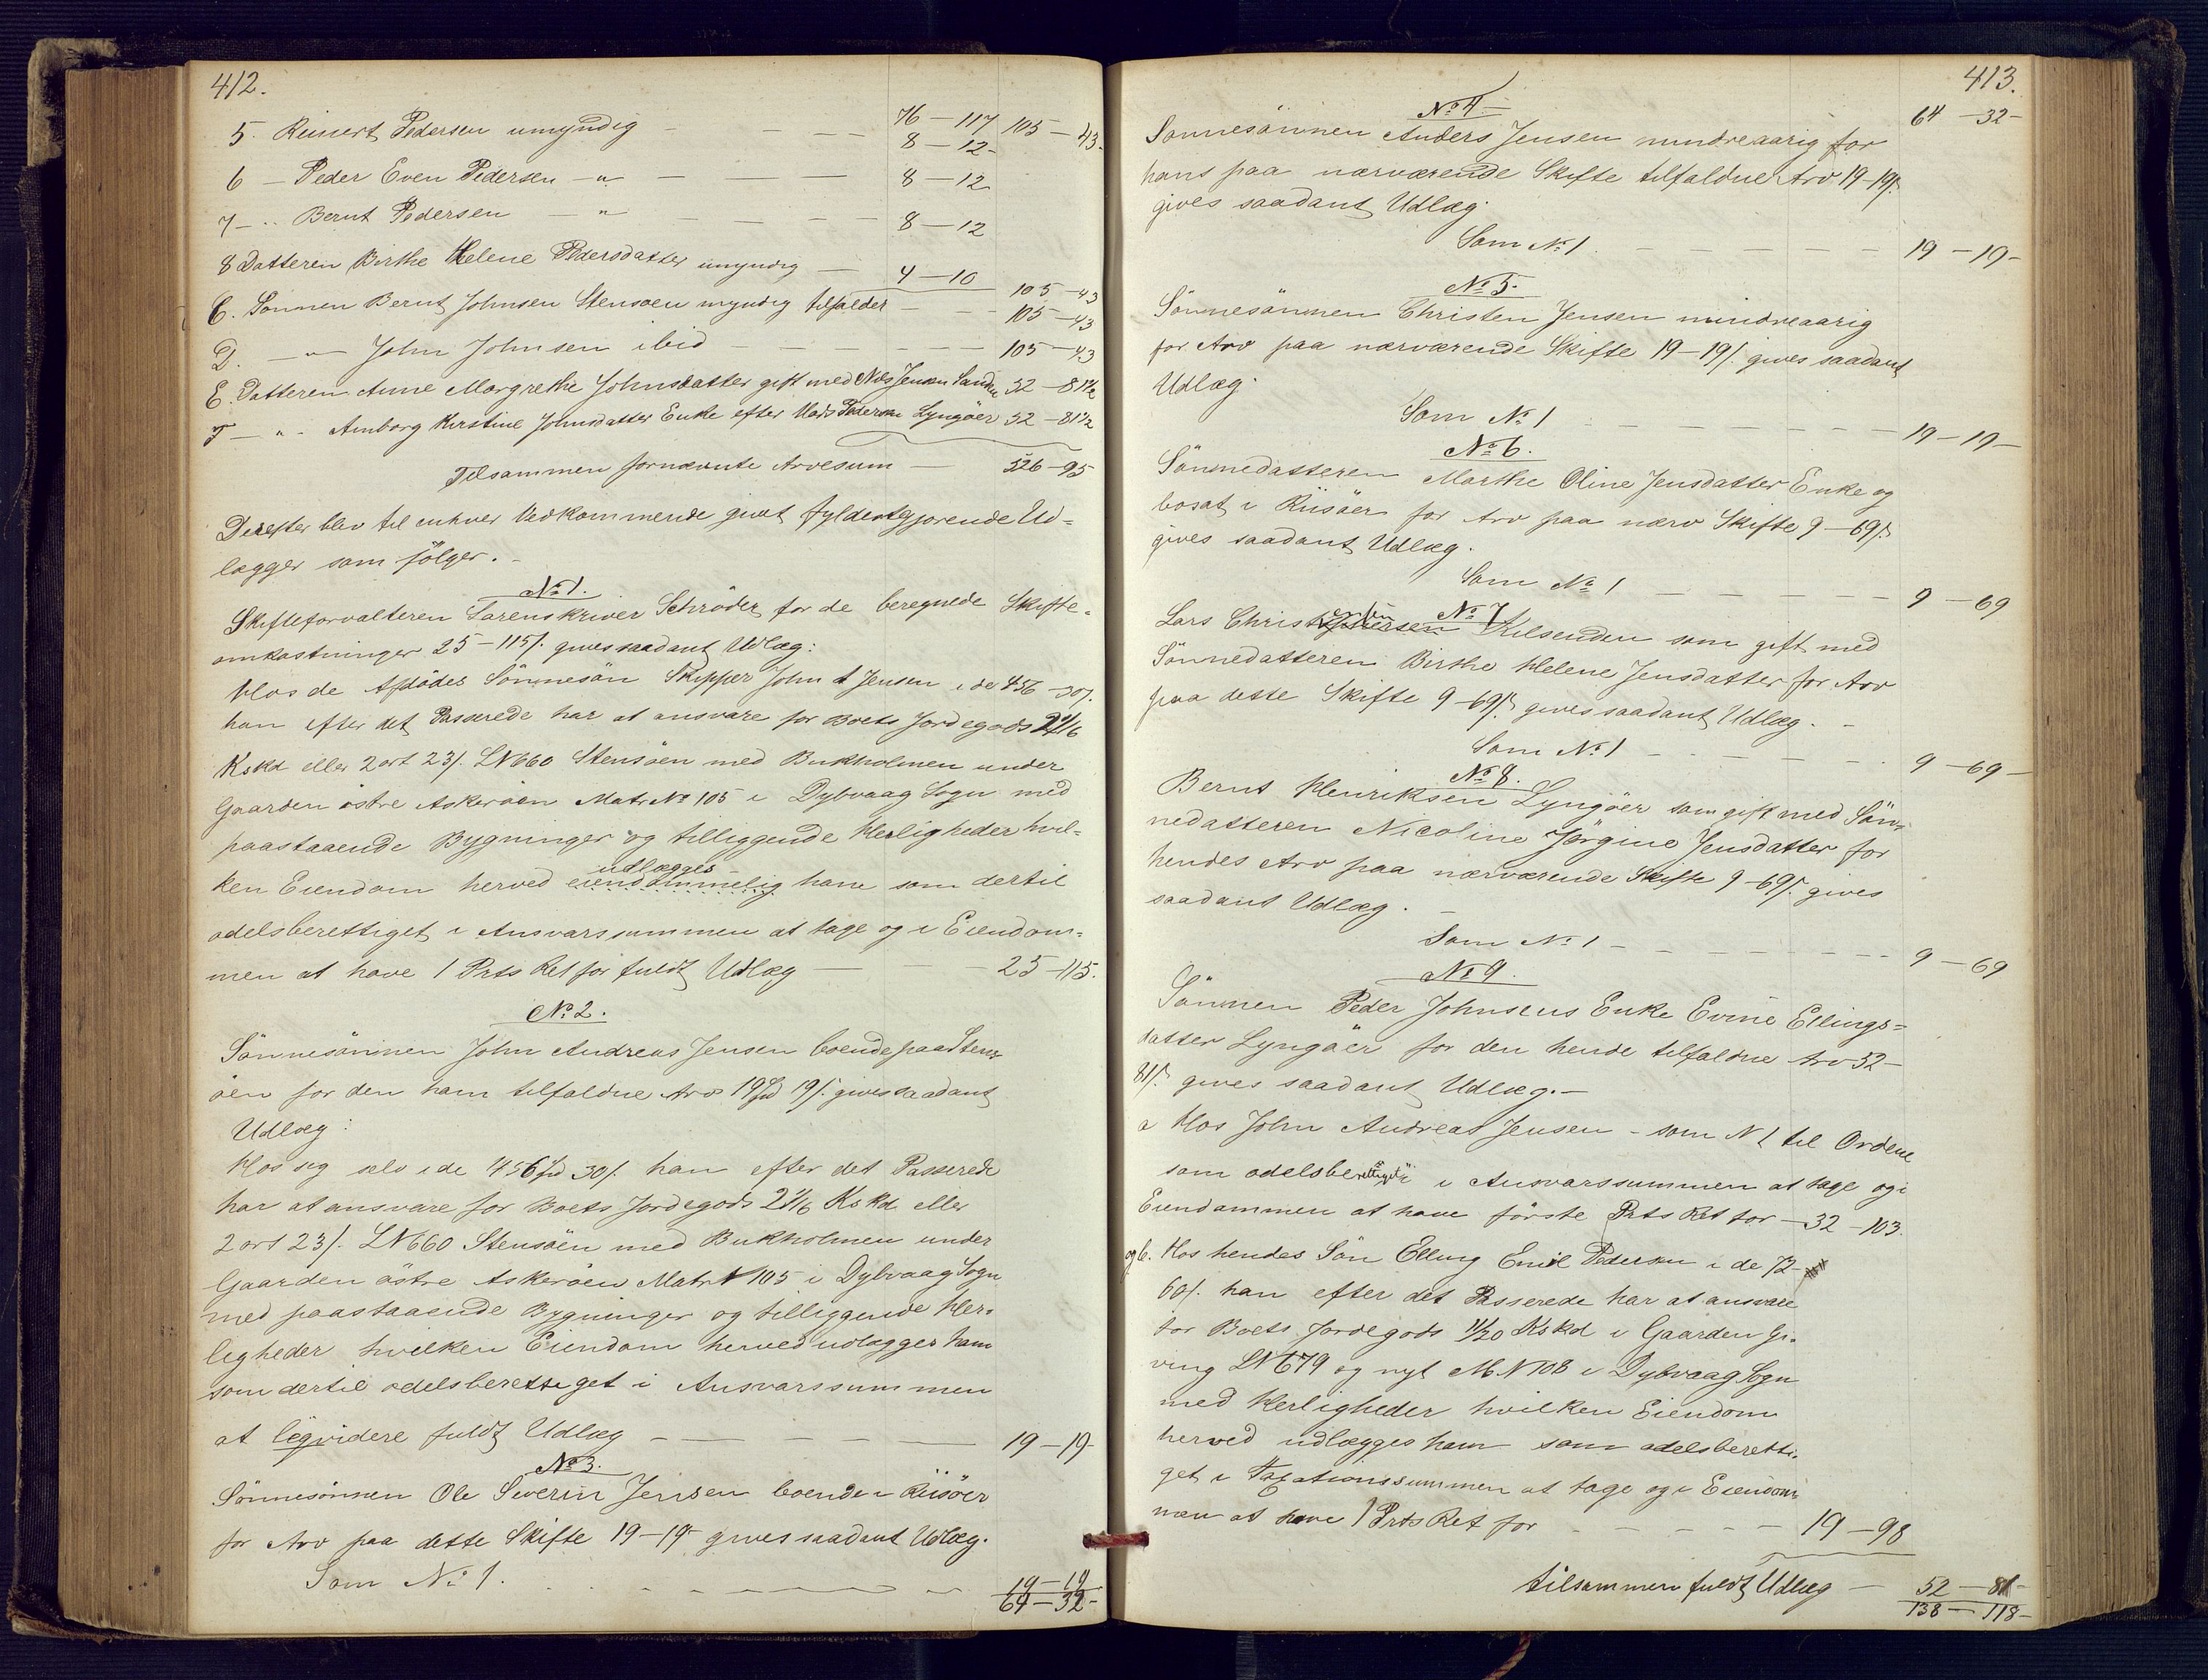 412.
76 — 117 105 — 43.
5. Reinert Pedersen umyndig — — — 8 — 12-
6 — Peder Even Pedersen — " — — — 8 — 12
7 — " Bernt Pedersen — " — — — 8 — 12
8 Datteren Birthe Helene Pedersdatter umyndig — 4 — 10
105 — 43
C. Sønnen Bernt Johnsen Stensøen myndig tilfalder — — 105 — 43
D. — " — John Johnsen ibid — — — 105 — 43
E. Datteren Anne Margrethe Johnsdatter gift med Nils Jensen Sanden 52 — 81½
F — " - Amborg Kirstine Johnsdatter Enke efter Mads Pedersen Lyngøer 52 — 81½
Tilsammen fornævnte Arvesum — 526 — 95
Derefter blev til enhver Vedkommende givet fyldestgjørende Ud=
lægger som følger. -
No 1.
Skifteforvalteren Sorenskriver Schrøder for de beregnede Skifte=
omkostninger 25 — 115/. gives saadant Udlæg:
Hos de Afdødes Sønnesøn Skipper John A Jensen i de 456 — 30/.
han efter det Passerede har at ansvare for Boets Jordegods 2 1/16
Kskd eller 2 ort 23/. LN 660 Stensøen med Bukholmen under
Gaarden østre Askerøen Matr No 105 i Dybvaag Sogn med
paastaaende Bygninger og tilliggende Herligheder hvil=
udlægges
ken Eiendom herved eiendommelig ham som dertil
odelsberettiget i Ansvarssummen at tage og i Eiendom=
men at have 1 Prts Ret for fuldt Udlæg — — 25 — 115.
No 2.
Sønnesønnen John Andreas Jensen boende paa Stens=
øen for den ham tilfaldne Arv 19 Spd 19/. gives saadant
Udlæg:
Hos sig selv i de 456 Spd 30/. han efter det Passerede
har at ansvare for Boets Jordegods 2 1/16 Kskd eller
2 ort 23/. LN 660 Stensøen med Bukholmen under
Gaarden østre Askerøen Matr N 105 i Dybvaag Sogn
med paastaaende Bygninger og tilliggende Her=
ligheder hvilken Eiendom herved udlægges ham
som dertil odelsberettiget i Ansvarssummen
at liqvidere fuldt Udlæg — — — 19 — 19-
No 3.
Sønnesønnen Ole Severin Jensen boende i Riisøer
for Arv paa dette Skifte 19 — 19 gives saadant Udlæg.
Som No 1. — — — 19 — 19.
64 — 32-
413.
64 — 32-
No 4 —
Sønnesønnen Anders Jensen mindreaarig for
hans paa nærværende Skifte tilfaldne Arv 19-19/.
gives saadant Udlæg.
Som No 1. — — — 19 — 19-
No 5.
Sønnesønnen Christen Jensen mindreaarig
for Arv paa nærværende Skifte 19-19/. gives saadant
Udlæg.
Som No 1 — — — 19 — 19 —
No 6.
Sønnedatteren Marthe Oline Jensdatter Enke og
bosat i Riisøer for Arv paa nærv Skifte 9 — 69/.
gives saadant Udlæg.
Som No 1 — — — 9 — 69
No 7
Lars Christ Kilsenden som gift med
Sønnedatteren Birthe Helene Jensdatter for Arv
paa dette Skifte 9 — 69/. gives saadant Udlæg. —
Som No 1 — — — 9 — 69 —
No 8.
Bernt Henriksen Lyngøer som gift med Søn=
nedatteren Nicoline Jørgine Jensdatter for
hendes Arv paa nærværende Skifte 9 — 69/. gives
saadant Udlæg. —
Som No 1 — — — 9 — 69
No 9.
Sønnen Peder Johnsens Enke Evine Ellings=
datter Lyngøer for den hende tilfaldne Arv 52 —
81/. gives saadant Udlæg. —
a Hos John Andreas Jensen - som N 1 til Ordene
som odelsberettiget i Ansvarssummen at tage og i
Eiendommen at have første Prts Ret for — 32 — 103.
og b. Hos hendes Søn Elling Emil Pedersen i de 72-
60/. han efter det Passerede har at ansvare
for Boets Jordegods 11/20 Kskd i Gaarden Gi=
ving LN 679 og nyt M.N 108 i Dybvaag Sogn
med Herligheder hvilken Eiendom
herved udlægges ham som odelsberetti=
get i Taxationssummen at tage og i Eiendom=
men at have 1 Prts Ret for — — — 19 — 98
tilsammen fuldt Udlæg — 52 — 81-
138 — 118 —